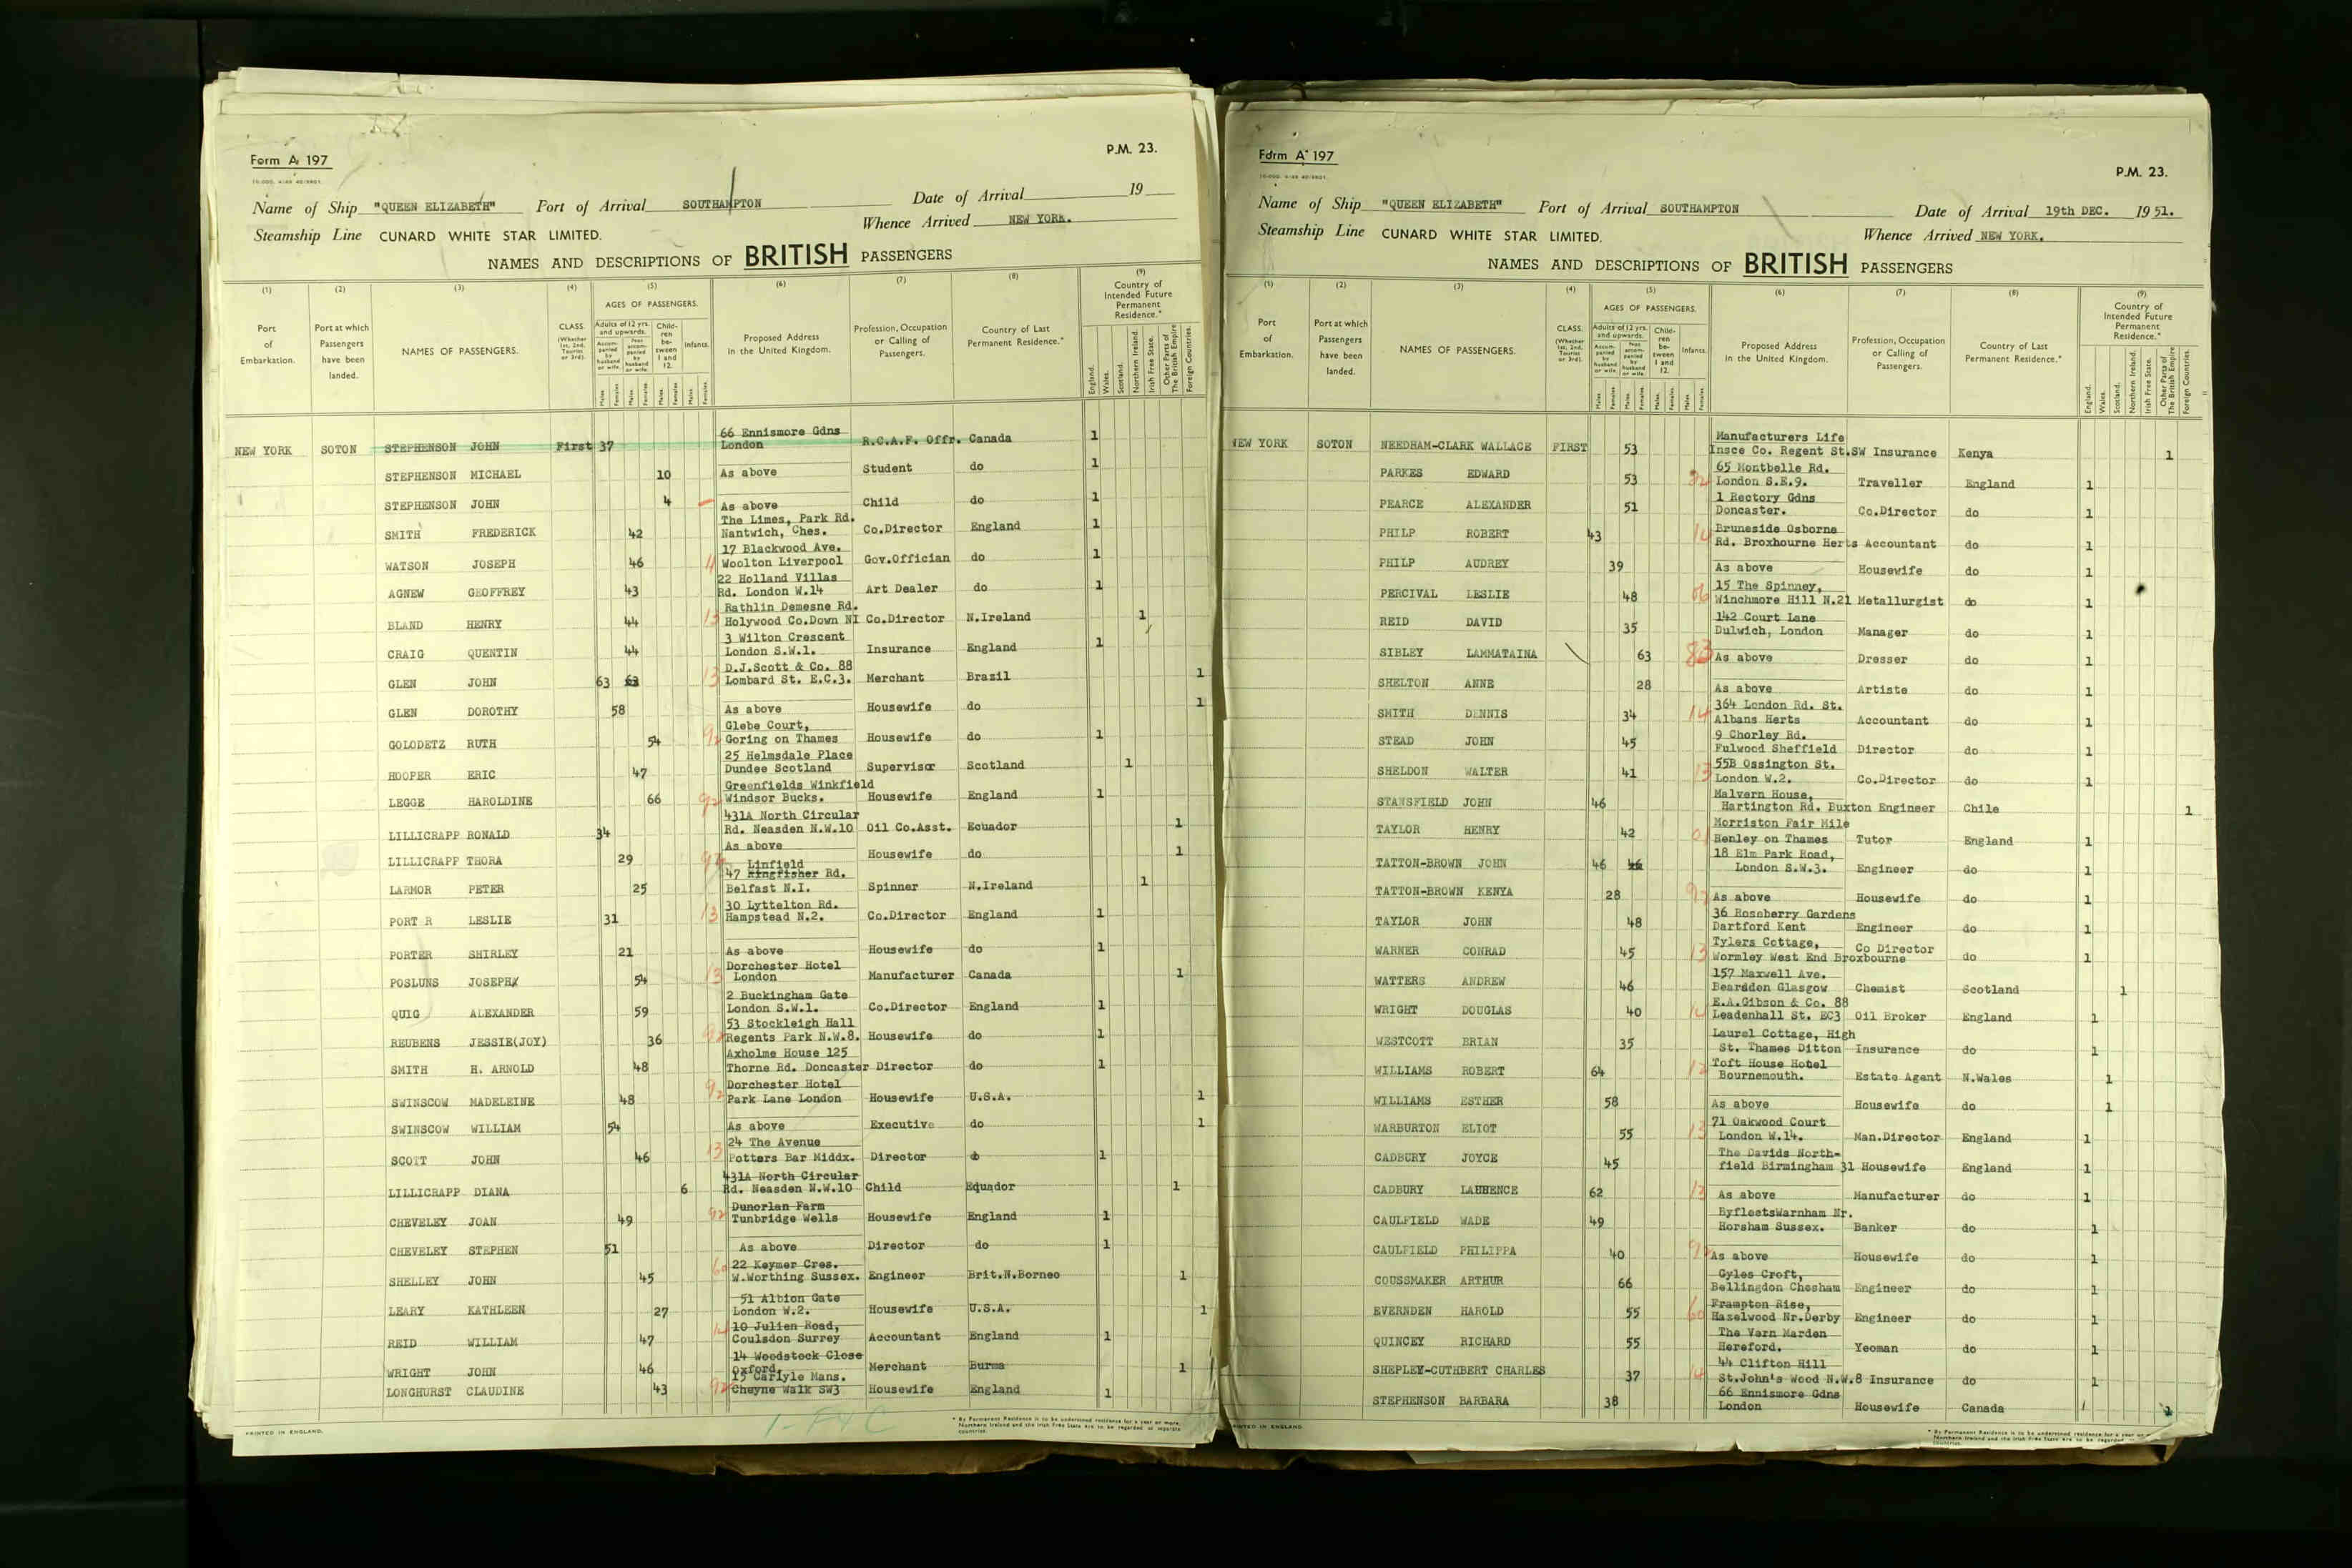 Form A 197
P.M. 23.
Name of Ship "QUEEN ELIZABETH" Port of Arrival SOUTHAMPTON Date of Arrival 19
Whence Arrived NEW YORK.
Steamship Line CUNARD WHITE STAR LIMITED.
NAMES AND DESCRIPTIONS OF BRITISH PASSENGERS
(1) (2) (3) (4) (5) (6) (7) (8) (9)
Port of Embarkation. Port at which Passengers have been landed. NAMES OF PASSENGERS. CLASS. (Whether 1st, 2nd, Tourist or 3rd). AGES OF PASSENGERS. Proposed Address in the United Kingdom. Profession, Occupation or Calling of Passengers. Country of Last Permanent Residence.* Country of Intended Future Permanent Residence.*
Adults of 12 yrs. and upwards. Children between 1 and 12. Infants.
Accompanied by husband or wife. Not accompanied by husband or wife.
Males. Females. Males. Females. Males. Females. Males. Females. England. Wales. Scotland. Northern Ireland. Irish Free State. Other Parts of The British Empire Foreign Countries.
66 Ennismore Gdns
NEW YORK SOTON STEPHENSON JOHN First 37 London R.C.A.F. Offr. Canada 1
STEPHENSON MICHAEL 10 As above Student do 1
STEPHENSON JOHN 4 As above Child do 1
The Limes, Park Rd.
SMITH FREDERICK 42 Nantwich, Ches. Co.Director England 1
17 Blackwood Ave.
WATSON JOSEPH 46 Woolton Liverpool Gov.Official do 1
22 Holland Villas
AGNEW GEOFFREY 43 Rd. London W.14 Art Dealer do 1
Rathlin Demesne Rd.
BLAND HENRY 44 Holywood Co.Down NI Co.Director N.Ireland 1
3 Wilton Crescent
CRAIG QUENTIN 44 London S.W.1. Insurance England 1
D.J.Scott & Co. 88
GLEN JOHN 63 63 Lombard St. E.C.3. Merchant Brazil 1
GLEN DOROTHY 58 As above Housewife do 1
Glebe Court,
GOLODETZ RUTH 54 Goring on Thames Housewife do 1
25 Helmsdale Place
HOOPER ERIC 47 Dundee Scotland Supervisor Scotland 1
Greenfields Winkfield
LEGGE HAROLDINE 66 Windsor Bucks. Housewife England 1
431A North Circular
LILLICRAPP RONALD 34 Rd. Neasden N.W.10 Oil Co.Asst. Ecuador 1
LILLICRAPP THORA 29 As above Housewife do 1
Linfield
47 Kingfisher Rd.
LARMOR PETER 25 Belfast N.I. Spinner N.Ireland 1
30 Lyttelton Rd.
PORT R LESLIE 31 Hampstead N.2. Co.Director England 1
PORTER SHIRLEY 21 As above Housewife do 1
Dorchester Hotel
POSLUNS JOSEPH 54 London Manufacturer Canada 1
2 Buckingham Gate
QUIG ALEXANDER 59 London S.W.1. Co.Director England 1
53 Stockleigh Hall
REUBENS JESSIE(JOY) 36 Regents Park N.W.8. Housewife do 1
Axholme House 125
SMITH H. ARNOLD 48 Thorne Rd. Doncaster Director do 1
Dorchester Hotel
SWINSCOW MADELEINE 48 Park Lane London Housewife U.S.A. 1
SWINSCOW WILLIAM 54 As above Executive do 1
24 The Avenue
SCOTT JOHN 46 Potters Bar Middx. Director do 1
431A North Circular
LILLICRAPP DIANA 6 Rd. Neasden N.W.10 Child Equador 1
Dunorlan Farm
CHEVELEY JOAN 49 Tunbridge Wells Housewife England 1
CHEVELEY STEPHEN 51 As above Director do 1
22 Keymer Cres.
SHELLEY JOHN 45 W.Worthing Sussex. Engineer Brit.N.Borneo 1
51 Albion Gate
LEARY KATHLEEN 27 London W.2. Housewife U.S.A. 1
10 Julien Road,
REID WILLIAM 47 Coulsdon Surrey Accountant England 1
14 Woodstock Close
WRIGHT JOHN 46 Oxford. Merchant Burma 1
15 Carlyle Mans.
LONGHURST CLAUDINE 43 Cheyne Walk SW3 Housewife England 1
PRINTED IN ENGLAND.
* By Permanent Residence is to be understood residence for a year or more. Northern Ireland and the Irish Free State are to be regarded as separate countries.
Form A 197
P.M. 23.
Name of Ship "QUEEN ELIZABETH" Port of Arrival SOUTHAMPTON Date of Arrival 19th DEC. 1951.
Steamship Line CUNARD WHITE STAR LIMITED. Whence Arrived NEW YORK.
NAMES AND DESCRIPTIONS OF BRITISH PASSENGERS
(1) (2) (3) (4) (5) (6) (7) (8) (9)
Port of Embarkation. Port at which Passengers have been landed. NAMES OF PASSENGERS. CLASS. (Whether 1st, 2nd, Tourist or 3rd). AGES OF PASSENGERS. Proposed Address in the United Kingdom. Profession, Occupation or Calling of Passengers. Country of Last Permanent Residence.* Country of Intended Future Permanent Residence.*
Adults of 12 yrs. and upwards. Children between 1 and 12. Infants.
Accompanied by husband or wife. Not accompanied by husband or wife.
Males. Females. Males. Females. Males. Females. Males. Females. England. Wales. Scotland. Northern Ireland. Irish Free State. Other Parts of The British Empire Foreign Countries.
Manufacturers Life
NEW YORK SOTON NEEDHAM-CLARK WALLACE FIRST 53 Insce Co. Regent St.SW Insurance Kenya 1
65 Montbelle Rd.
PARKES EDWARD 53 London S.E.9. Traveller England 1
1 Rectory Gdns
PEARCE ALEXANDER 51 Doncaster. Co.Director do 1
Bruneside Osborne
PHILP ROBERT 43 Rd. Broxhourne Herts Accountant do 1
PHILP AUDREY 39 As above Housewife do 1
15 The Spinney,
PERCIVAL LESLIE 48 Winchmore Hill N.21 Metallurgist do 1
142 Court Lane
REID DAVID 35 Dulwich, London Manager do 1
SIBLEY LAMMATAINA 63 83 As above Dresser do 1
SHELTON ANNE 28 As above Artiste do 1
364 London Rd. St.
SMITH DENNIS 34 14 Albans Herts Accountant do 1
9 Chorley Rd.
STEAD JOHN 45 Fulwood Sheffield Director do 1
55B Ossington St.
SHELDON WALTER 41 13 London W.2. Co.Director do 1
Malvern House,
STANSFIELD JOHN 46 Hartington Rd. Buxton Engineer Chile 1
Morriston Fair Mile
TAYLOR HENRY 42 Henley on Thames Tutor England 1
18 Elm Park Road,
TATTON-BROWN JOHN 46 46 London S.W.3. Engineer do 1
TATTON-BROWN KENYA 28 As above Housewife do 1
36 Roseberry Gardens
TAYLOR JOHN 48 Dartford Kent Engineer do 1
Tylers Cottage,
WARNER CONRAD 45 13 Wormley West End Broxbourne Co Director do 1
157 Maxwell Ave.
WATTERS ANDREW 46 Bearsdon Glasgow Chemist Scotland 1
E.A.Gibson & Co. 88
WRIGHT DOUGLAS 40 Leadenhall St. EC3 Oil Broker England 1
Laurel Cottage, High
WESTCOTT BRIAN 35 St. Thames Ditton Insurance do 1
Toft House Hotel
WILLIAMS ROBERT 64 12 Bournemouth. Estate Agent N.Wales 1
WILLIAMS ESTHER 58 As above Housewife do 1
71 Oakwood Court
WARBURTON ELIOT 55 13 London W.14. Man.Director England 1
The Davids North-
CADBURY JOYCE 45 field Birmingham 31 Housewife England 1
CADBURY LAURENCE 62 13 As above Manufacturer do 1
ByfleetsWarnham Nr.
CAULFIELD WADE 49 Horsham Sussex. Banker do 1
CAULFIELD PHILIPPA 40 As above Housewife do 1
Gyles Croft,
COUSSMAKER ARTHUR 66 Bellingdon Chesham Engineer do 1
Frampton Rise,
EVERNDEN HAROLD 55 60 Hazelwood Nr.Derby Engineer do 1
The Vern Marden
QUINCEY RICHARD 55 Hereford. Yeoman do 1
44 Clifton Hill
SHEPLEY-CUTHBERT CHARLES 37 14 St.John's Wood N.W.8 Insurance do 1
66 Ennismore Gdns
STEPHENSON BARBARA 38 London Housewife Canada 1
PRINTED IN ENGLAND.
* By Permanent Residence is to be understood residence for a year or more. Northern Ireland and the Irish Free State are to be regarded